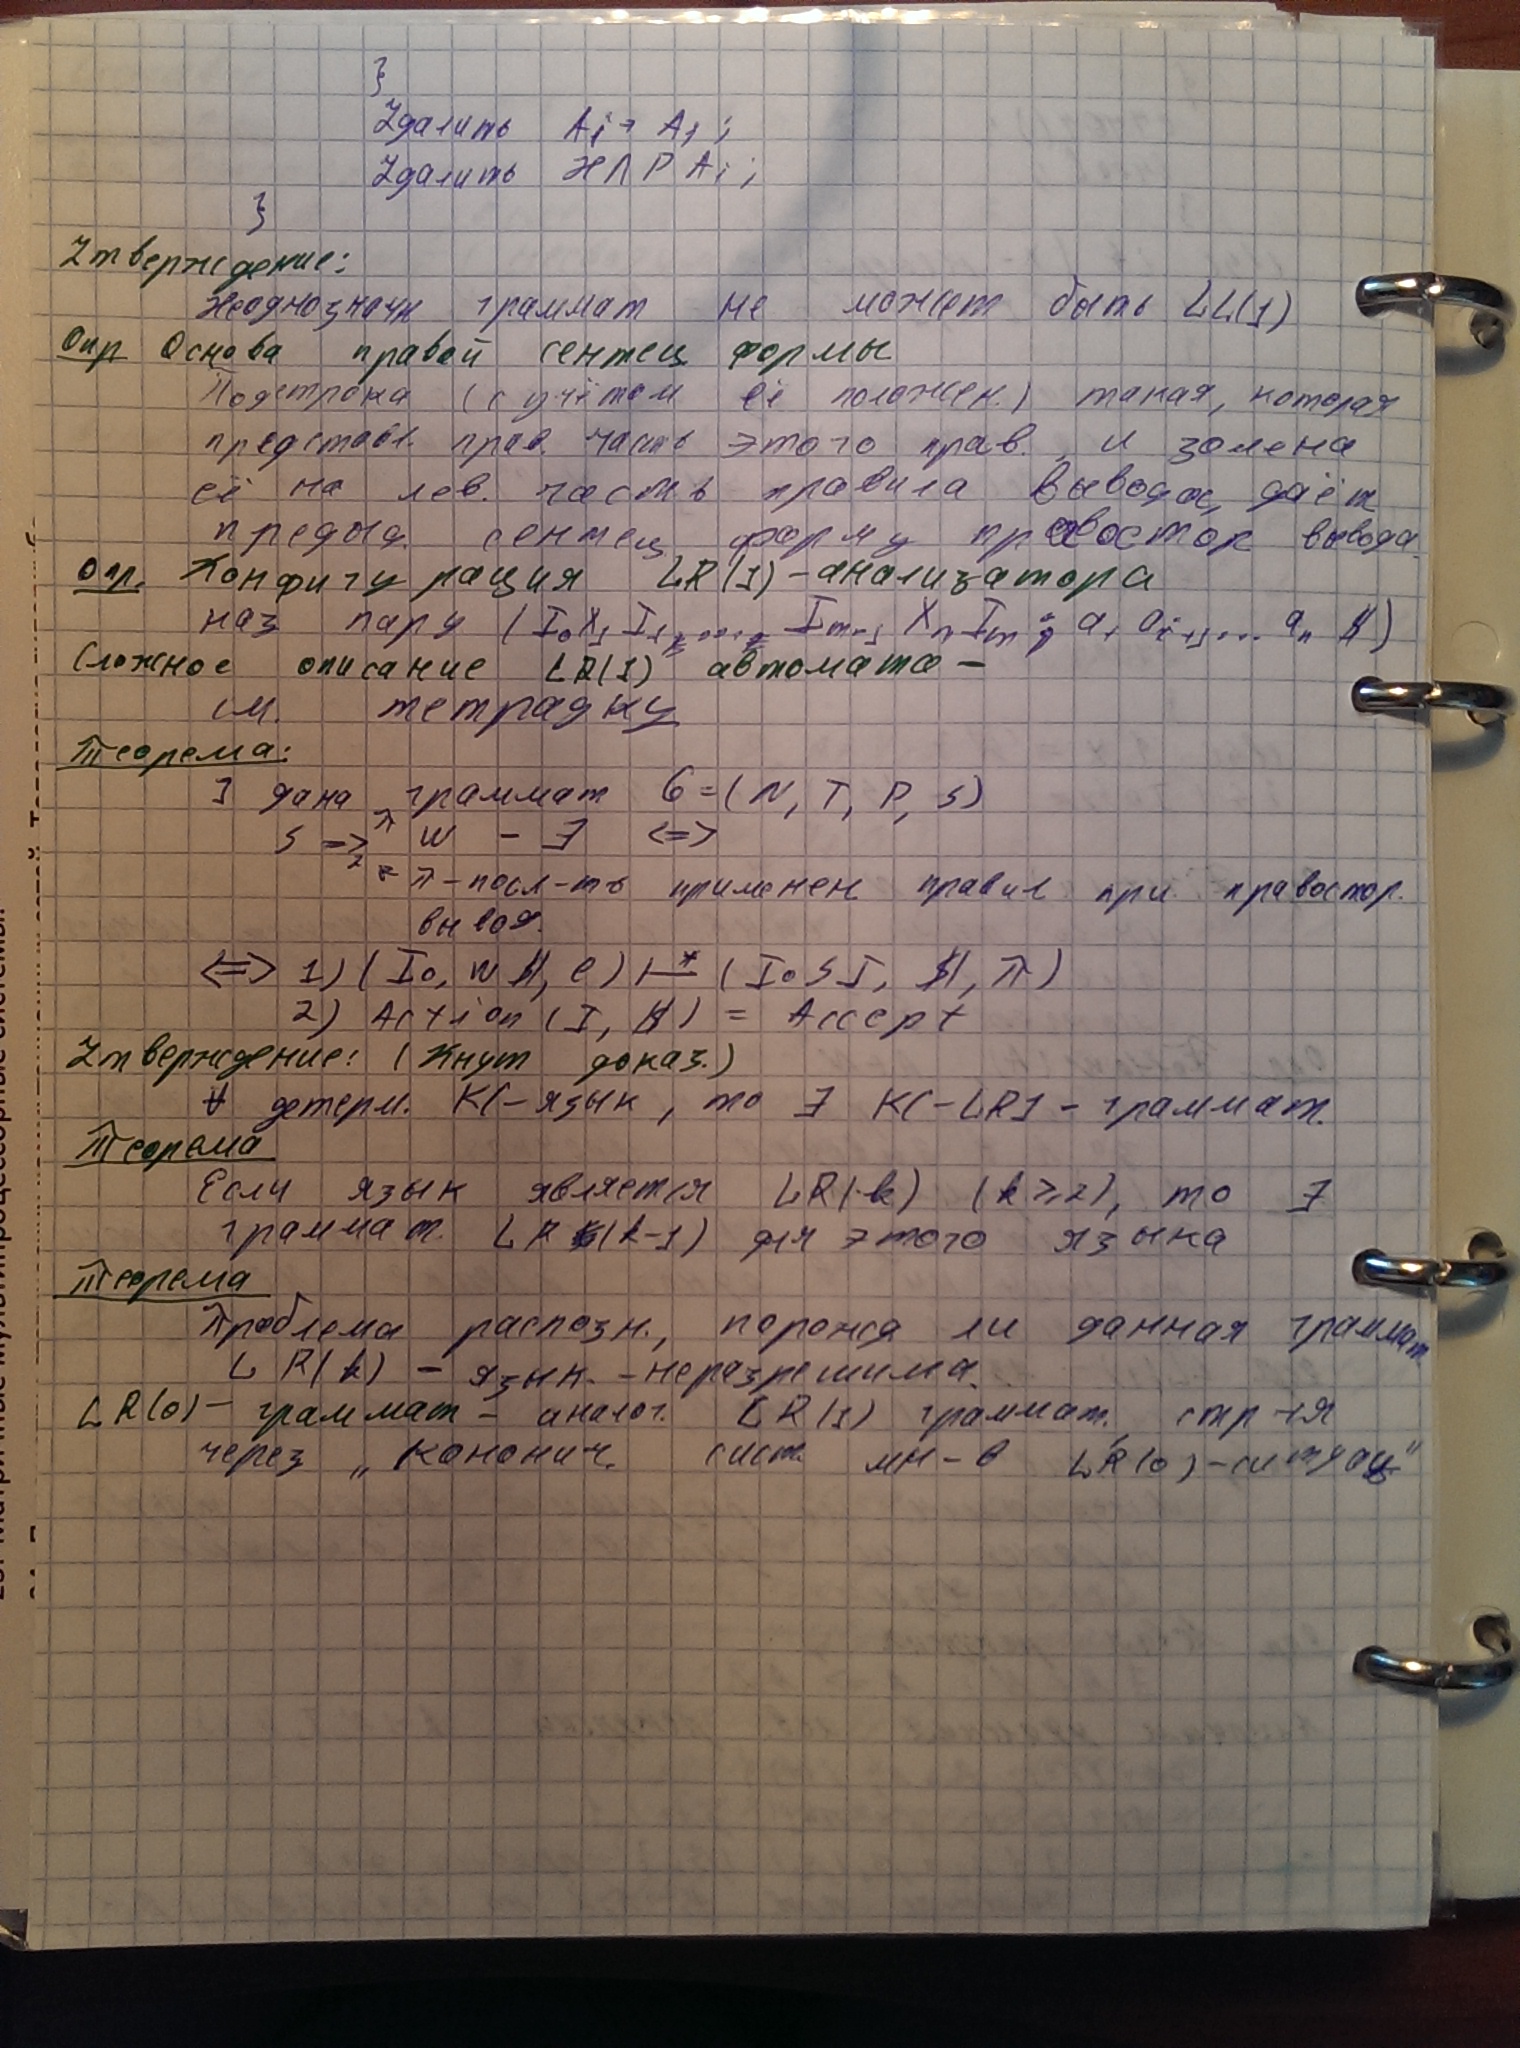 }
Удалить Ai → Aj ;
Удалить НЛР Ai ;
}
Утверждение:
Неоднозначн граммат не может быть LL(1)
Опр Основа правой сентец формы
Подстрока (с учётом её положен.) такая, которая
представл. прав. часть этого прав., и замена
её на лев. часть правила вывода, даёт
предыд. сентец форму правостор вывода.
Опр. Конфигурация LR(1)-анализатора
наз пару (I₀X₁I₁ ... Iₘ₋₁ XₘIₘ ; aᵢ aᵢ₊₁... aₙ $)
Сложное описание LR(1) автомата –
см. тетрадку
Теорема:
] дана граммат G=(N, T, P, S)
S =>ᵣ^π w – ∃ <=>
π-посл-ть применен правил при правостор.
вывод.
<=> 1) (I₀, w$, e) ⊢* (I₀SI, $, π)
2) Action (I, $) = Accept
Утверждение: (Кнут доказ.)
∀ детерм. КС-язык, то ∃ КС-LR1-граммат.
Теорема
Если язык является LR(k) (k≥2), то ∃
граммат. LR(k-1) для этого языка
Теорема
Проблема распозн., порожд ли данная граммат
LR(k) – язык. – неразрешима.
LR(0)– граммат – аналог. LR(1) граммат. стр-тя
через „Канонич. сист. мн-в LR(0)-ситуац"